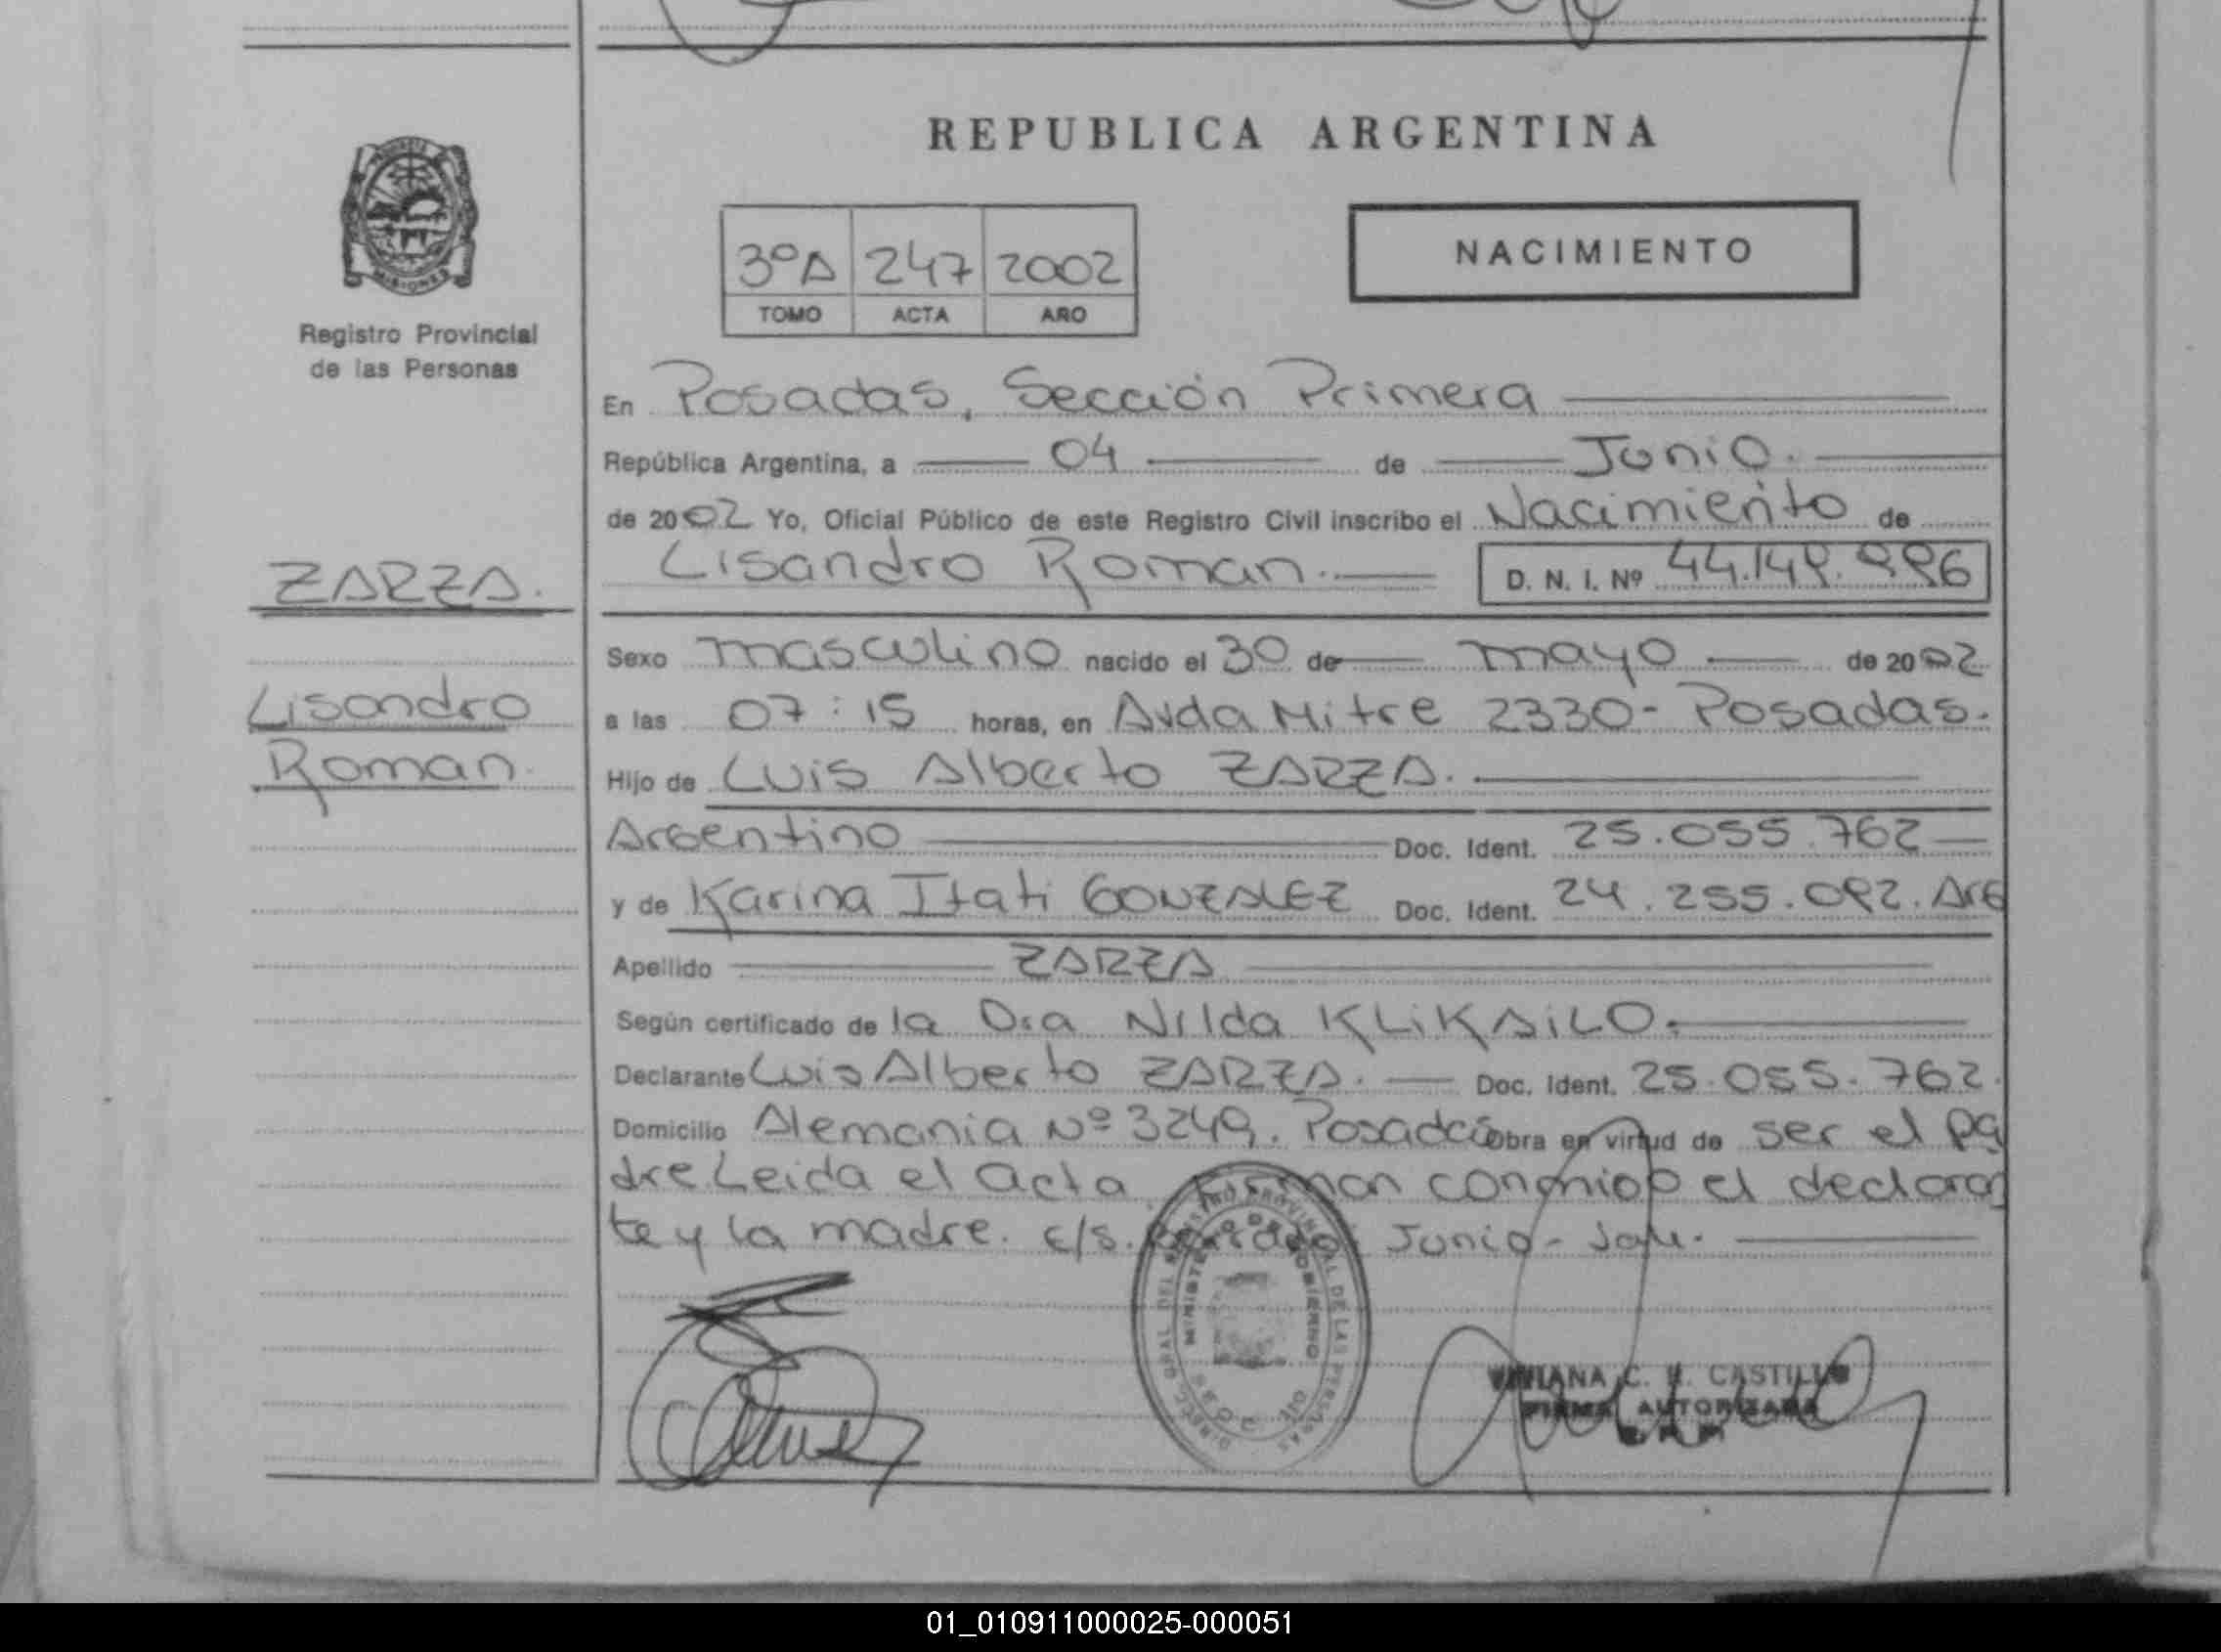 REPUBLICA ARGENTINA
3ºA 247 2002
TOMO ACTA AÑO
NACIMIENTO
MISIONES
Registro Provincial
de las Personas
ZARZA.
Lisandro
Roman.
En Posadas, Sección Primera
República Argentina, a 04 de Junio.
de 2002 Yo, Oficial Público de este Registro Civil inscribo el Nacimiento de
Lisandro Roman. D. N. I. Nº
Sexo masculino nacido el 30 de mayo de 2002
a las 07:15 horas, en Avda Mitre 2330- Posadas.
Hijo de Luis Alberto ZARZA.
Argentino Doc. Ident. 25.055.762
y de Karina Itati GONZALEZ Doc. Ident. Arg
Apellido ZARZA
Según certificado de la Dra Nilda KLiKAiLO.
Declarante Luis Alberto ZARZA. Doc. Ident. 25.055.762.
Domicilio Alemania Nº 3249. Posadas obra en virtud de ser el pa
dre Leida el acta firman conmigo el declaran
te y la madre. c/s. Junio- Vale.
MINISTERIO DE GOBIERNO
VIVIANA C. CASTILLO
FIRMA AUTORIZADA
01_010911000025-000051